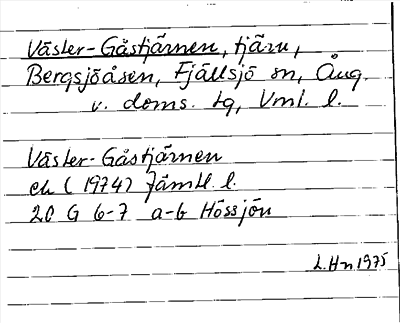 Väster-Gåstjärnen, tjärn,
Bergsjöåsen, Fjällsjö sn, Ång.
v. doms. tg, Vnl. l.
Väster-Gåstjärnen
ek (1974) Jämtl. l.
20 G 6-7 a-b Hössjön
L.Hn 1975